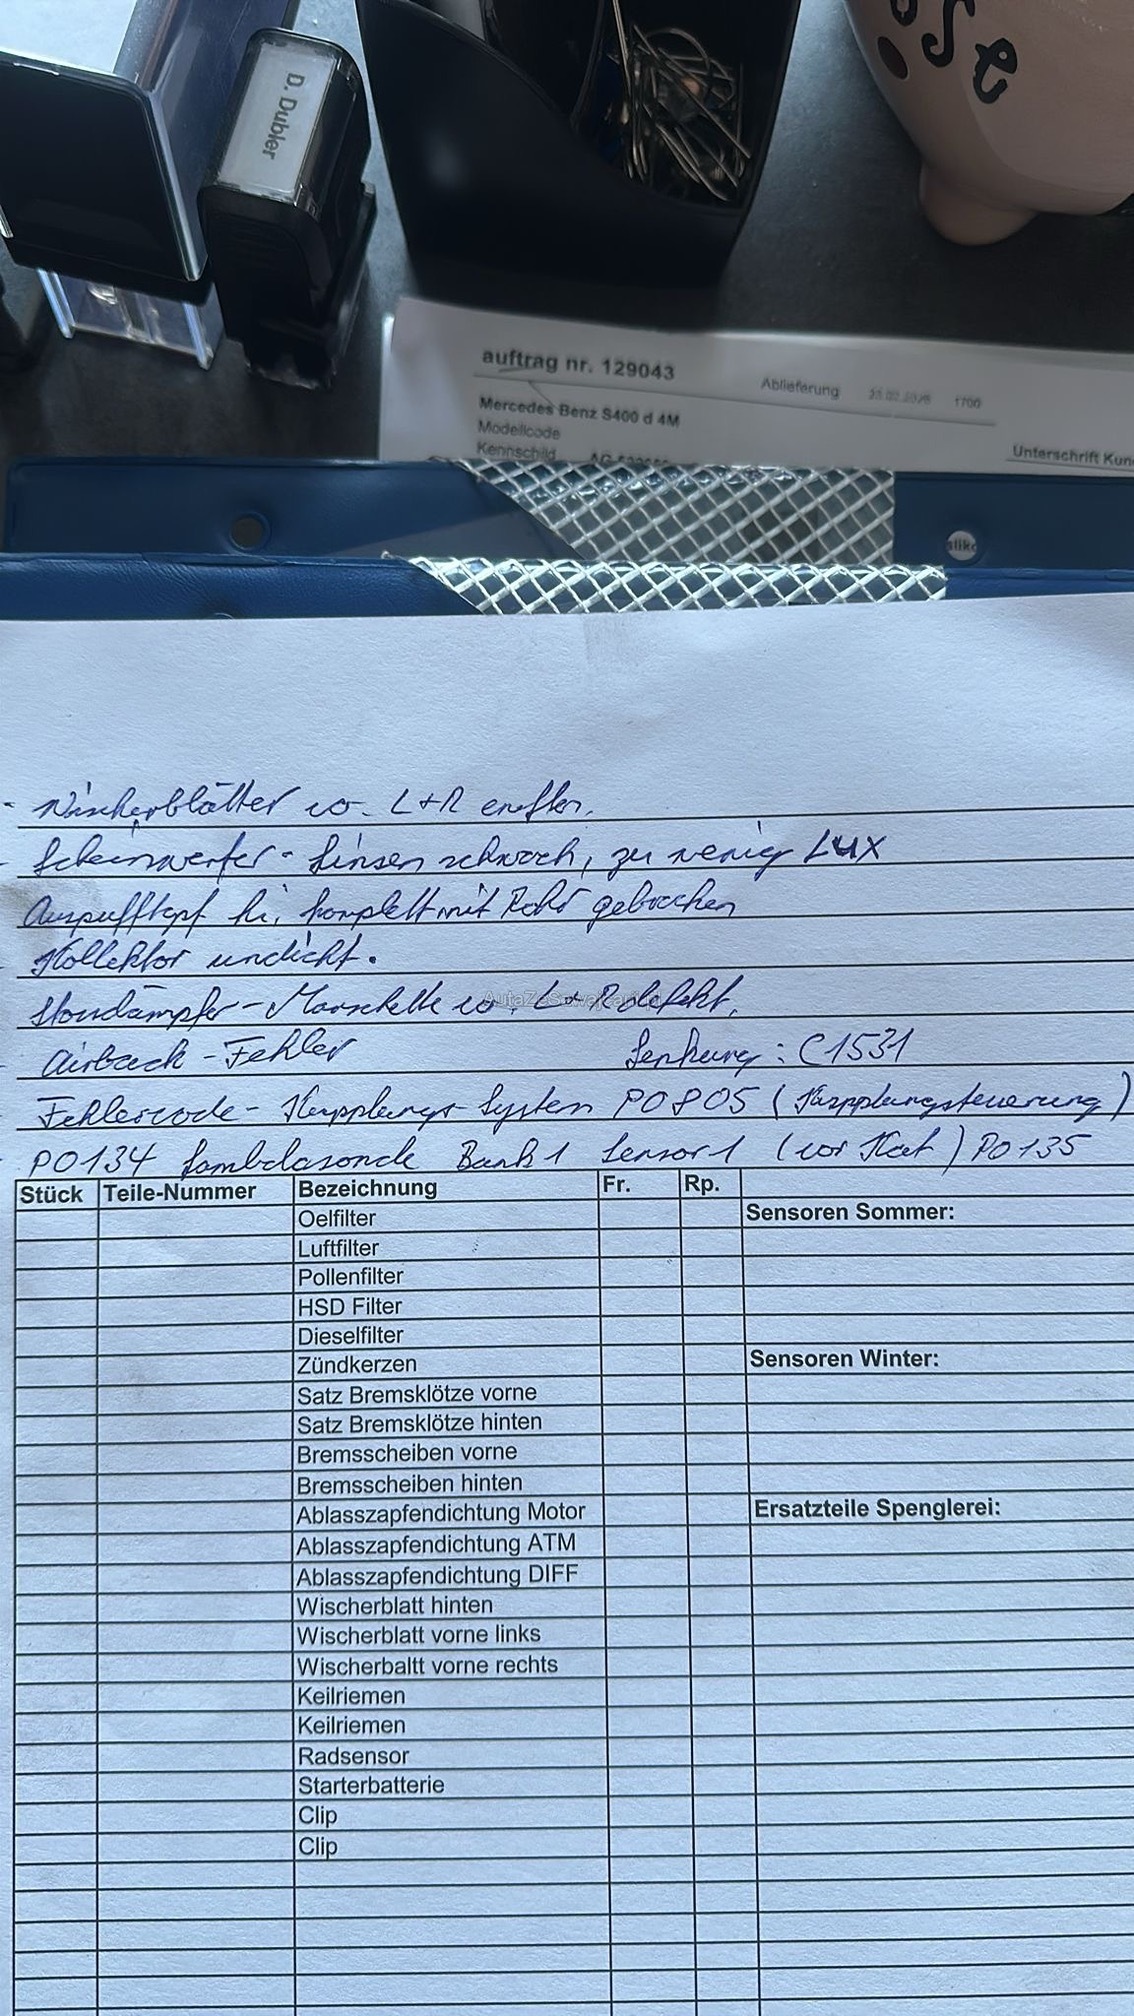 ose
D. Dubler
auftrag nr. 129043
Ablieferung 1700
Mercedes Benz S400 d 4M
Modellcode
Kennschild AG
Unterschrift Kun
- Wischerblätter vo. L+R
- Scheinwerfer - Linsen schwach, zu wenig LUX
Auspufftopf hi. komplett mit Rohr gebrochen
- Kollektor undicht.
Stossdämpfer - Manschette vo. L+R defekt.
AutaZeSzwajcarii.pl
- Airback - Fehler Lenkung: C1531
- Fehlercode - Kupplungs-System P0805 (Kupplungssteuerung)
- P0134 Lambdasonde Bank 1 Sensor 1 (vor Kat) P0135
Stück Teile-Nummer Bezeichnung Fr. Rp.
Oelfilter Sensoren Sommer:
Luftfilter
Pollenfilter
HSD Filter
Dieselfilter
Zündkerzen Sensoren Winter:
Satz Bremsklötze vorne
Satz Bremsklötze hinten
Bremsscheiben vorne
Bremsscheiben hinten
Ablasszapfendichtung Motor Ersatzteile Spenglerei:
Ablasszapfendichtung ATM
Ablasszapfendichtung DIFF
Wischerblatt hinten
Wischerblatt vorne links
Wischerbaltt vorne rechts
Keilriemen
Keilriemen
Radsensor
Starterbatterie
Clip
Clip